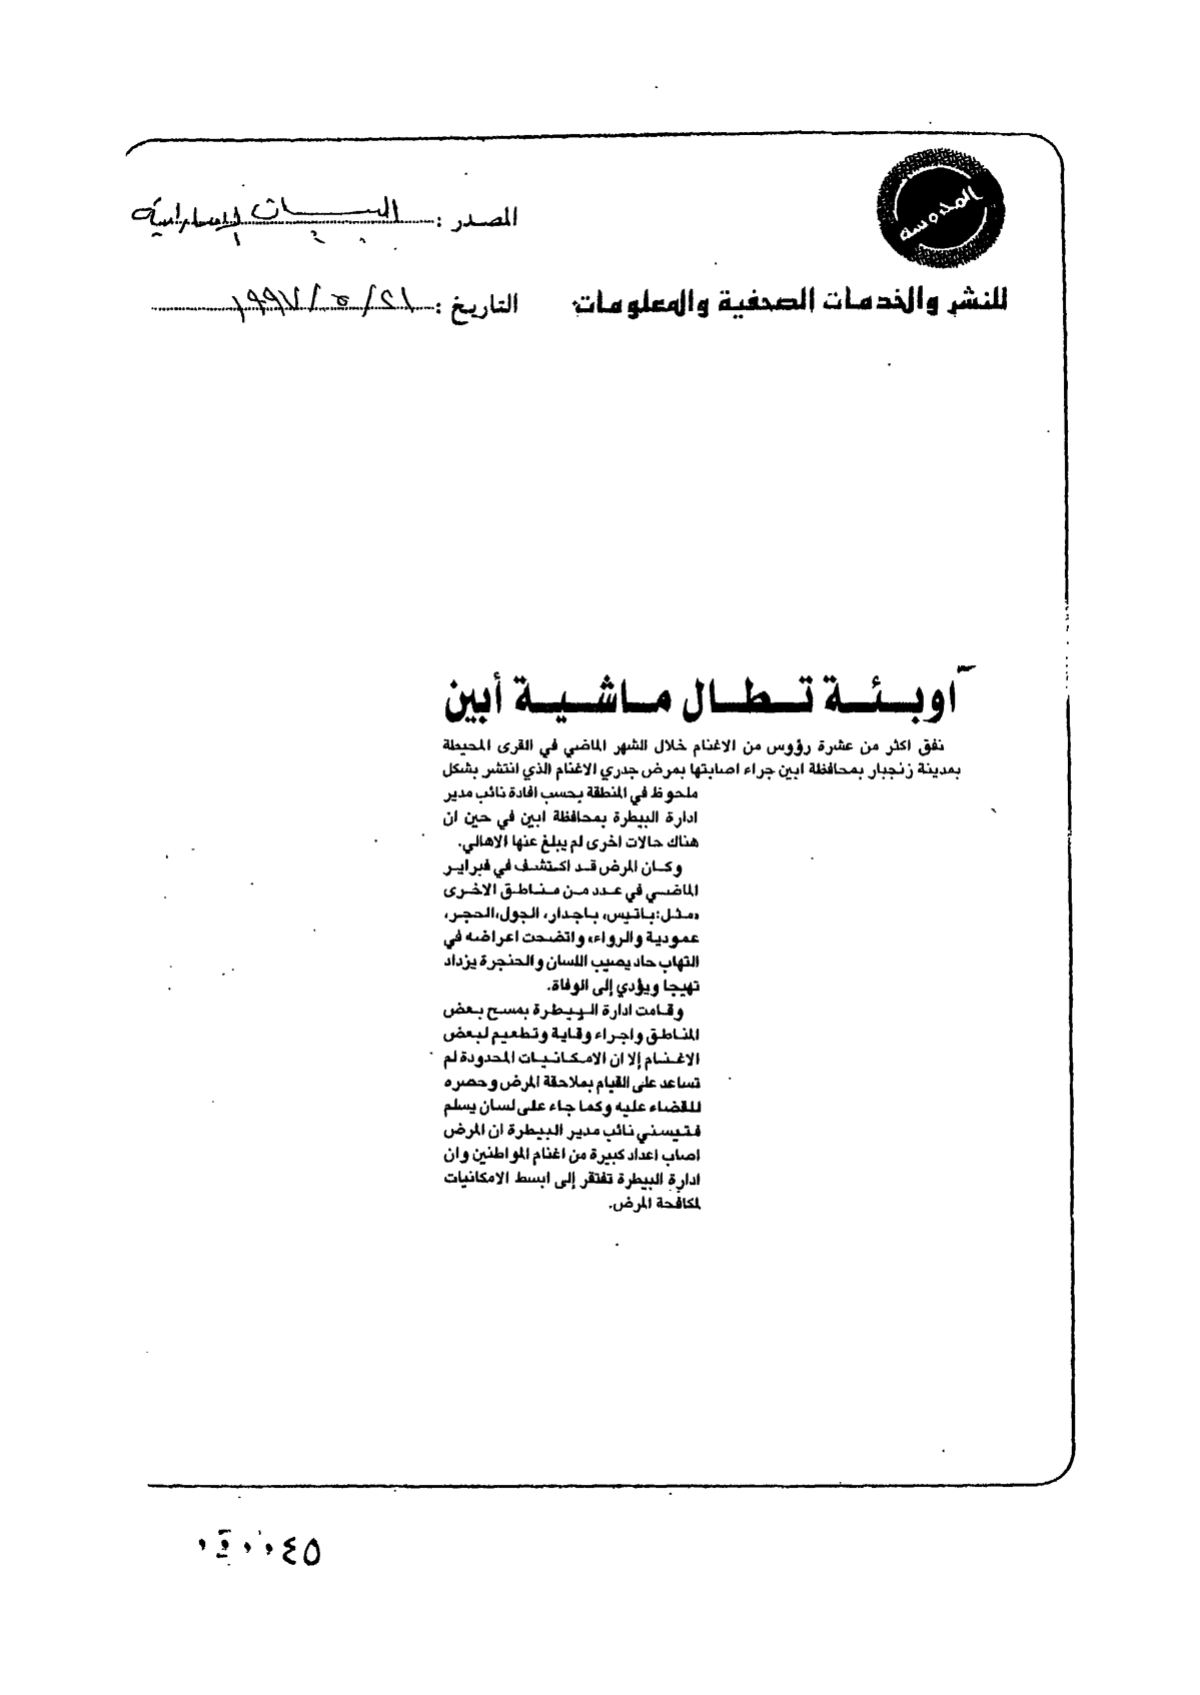 المدروسة
للنشر والخدمات الصحفية والمعلومات
المصدر : البيان الإماراتية
التاريخ : ٢١ / ٥ / ١٩٩٧
اوبئة تطال ماشية أبين
نفق اكثر من عشرة رؤوس من الاغنام خلال الشهر الماضي في القرى المحيطة
بمدينة زنجبار بمحافظة ابين جراء اصابتها بمرض جدري الاغنام الذي انتشر بشكل
ملحوظ في المنطقة بحسب افادة نائب مدير
ادارة البيطرة بمحافظة ابين في حين ان
هناك حالات اخرى لم يبلغ عنها الاهالي.
وكان المرض قد اكتشف في فبراير
الماضي في عدد من مناطق الاخرى
«مثل: باتيس، باجدار، الجول، الحجر،
عمودية والرواء» واتضحت اعراضه في
التهاب حاد يصيب اللسان والحنجرة يزداد
تهيجا ويؤدي إلى الوفاة.
وقامت ادارة البيطرة بمسح بعض
المناطق واجراء وقاية وتطعيم لبعض
الاغنام إلا ان الامكانيات المحدودة لم
تساعد على القيام بملاحقة المرض وحصره
للقضاء عليه وكما جاء على لسان يسلم
فتيسني نائب مدير البيطرة ان المرض
اصاب اعداد كبيرة من اغنام المواطنين وان
ادارة البيطرة تفتقر إلى ابسط الامكانيات
لمكافحة المرض.
٤٥